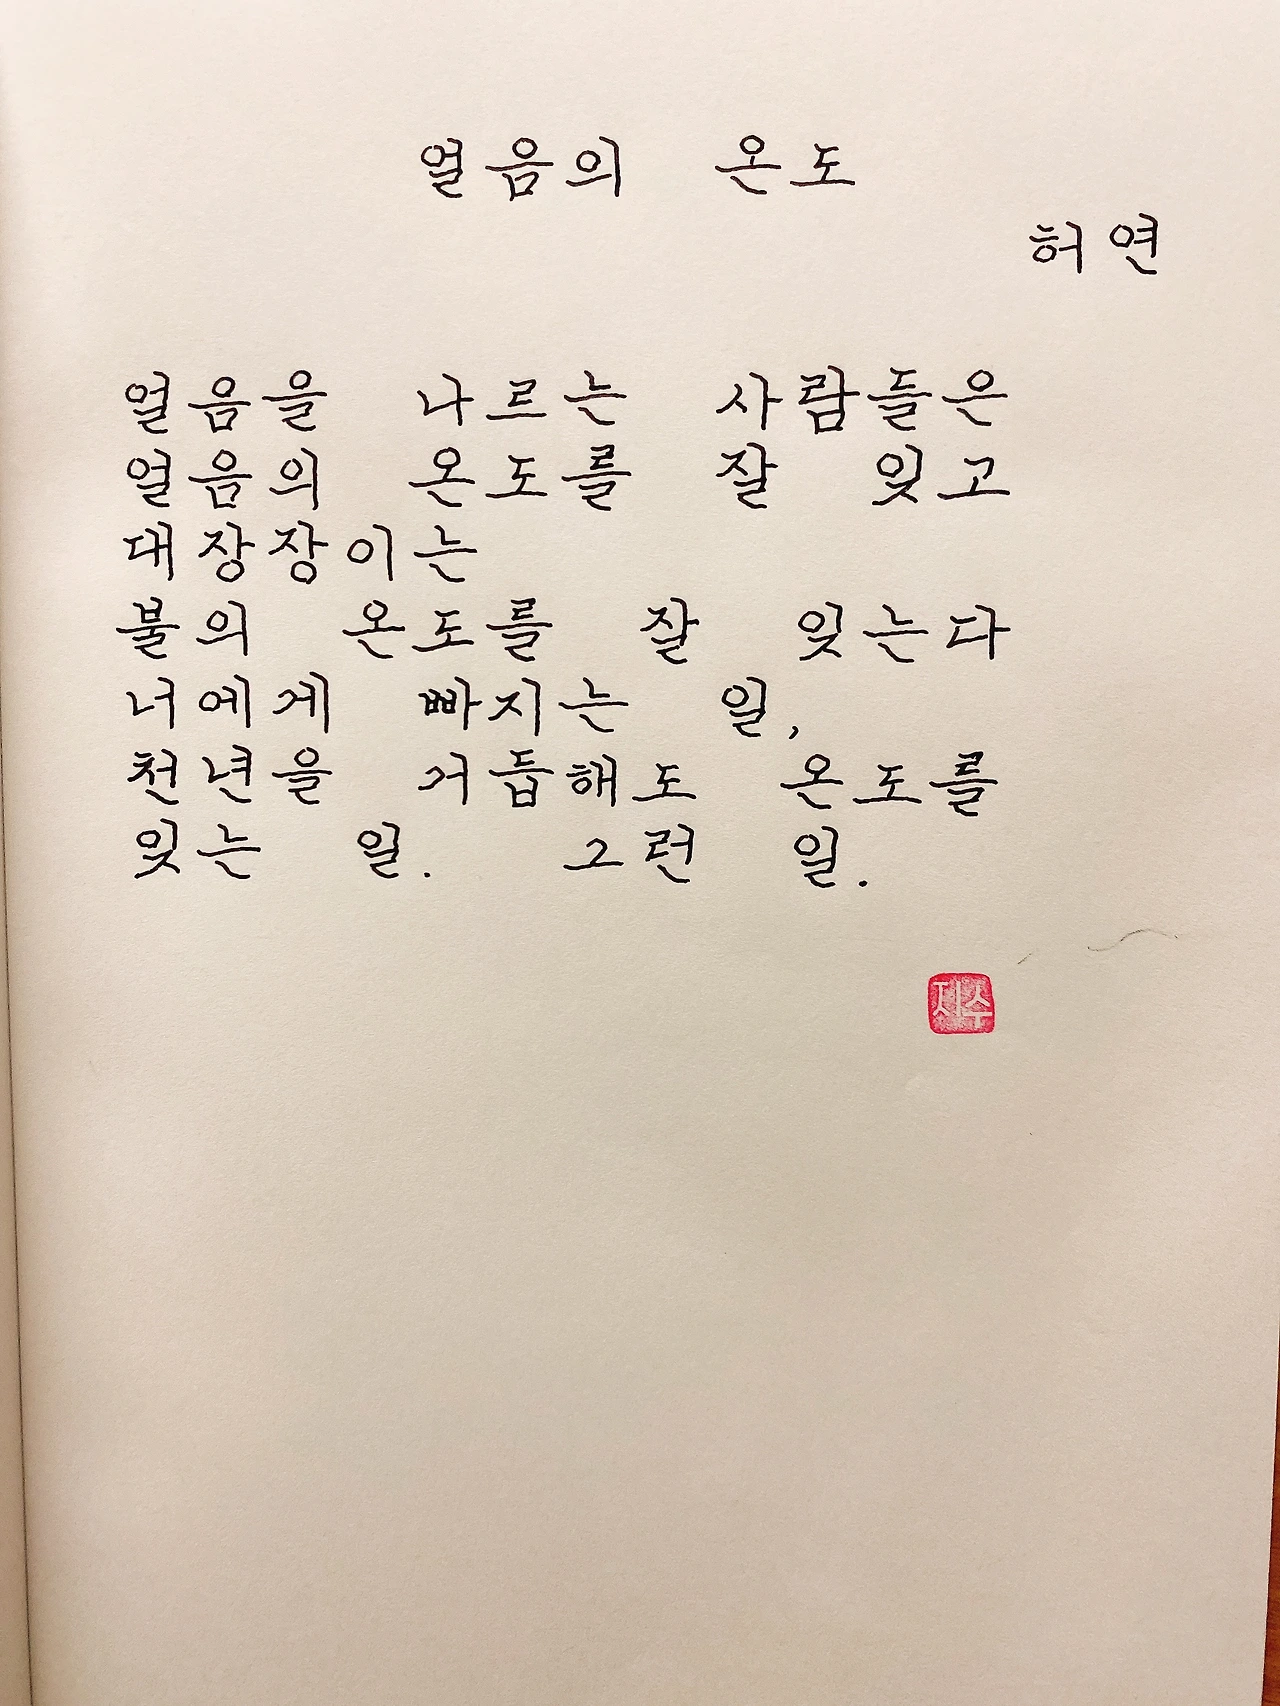 얼음의 온도
허연
얼음을 나르는 사람들은
얼음의 온도를 잘 잊고
대장장이는
불의 온도를 잘 잊는다
너에게 빠지는 일,
천년을 거듭해도 온도를
잊는 일. 그런 일.
지수